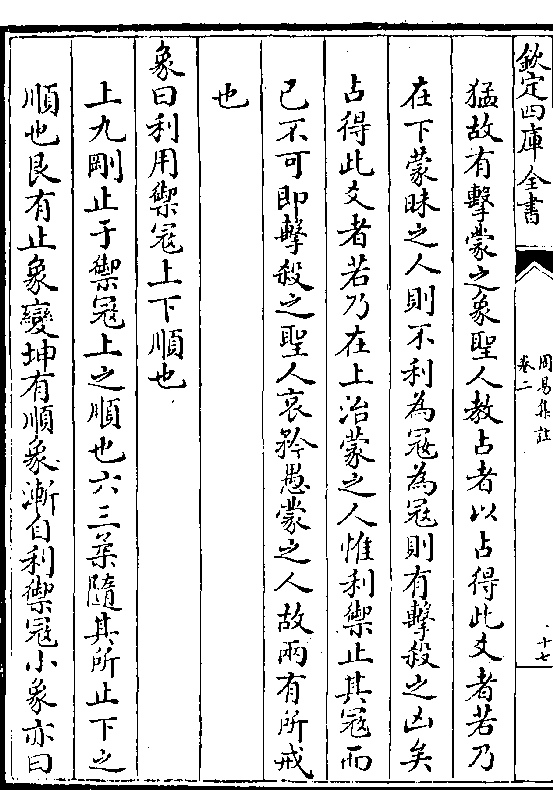 欽定四庫全書
周易集註
卷二
十七
猛故有擊蒙之象聖人教占者以占得此爻者若乃
在下蒙昧之人則不利為冦為冦則有擊殺之凶矣
占得此爻者若乃在上治蒙之人惟利禦止其冦而
已不可即擊殺之聖人哀矜愚蒙之人故兩有所戒
也
象曰利用禦冦上下順也
上九剛止于禦冦上之順也六三柔隨其所止下之
順也艮有止象變坤有順象漸自利禦冦小象亦曰